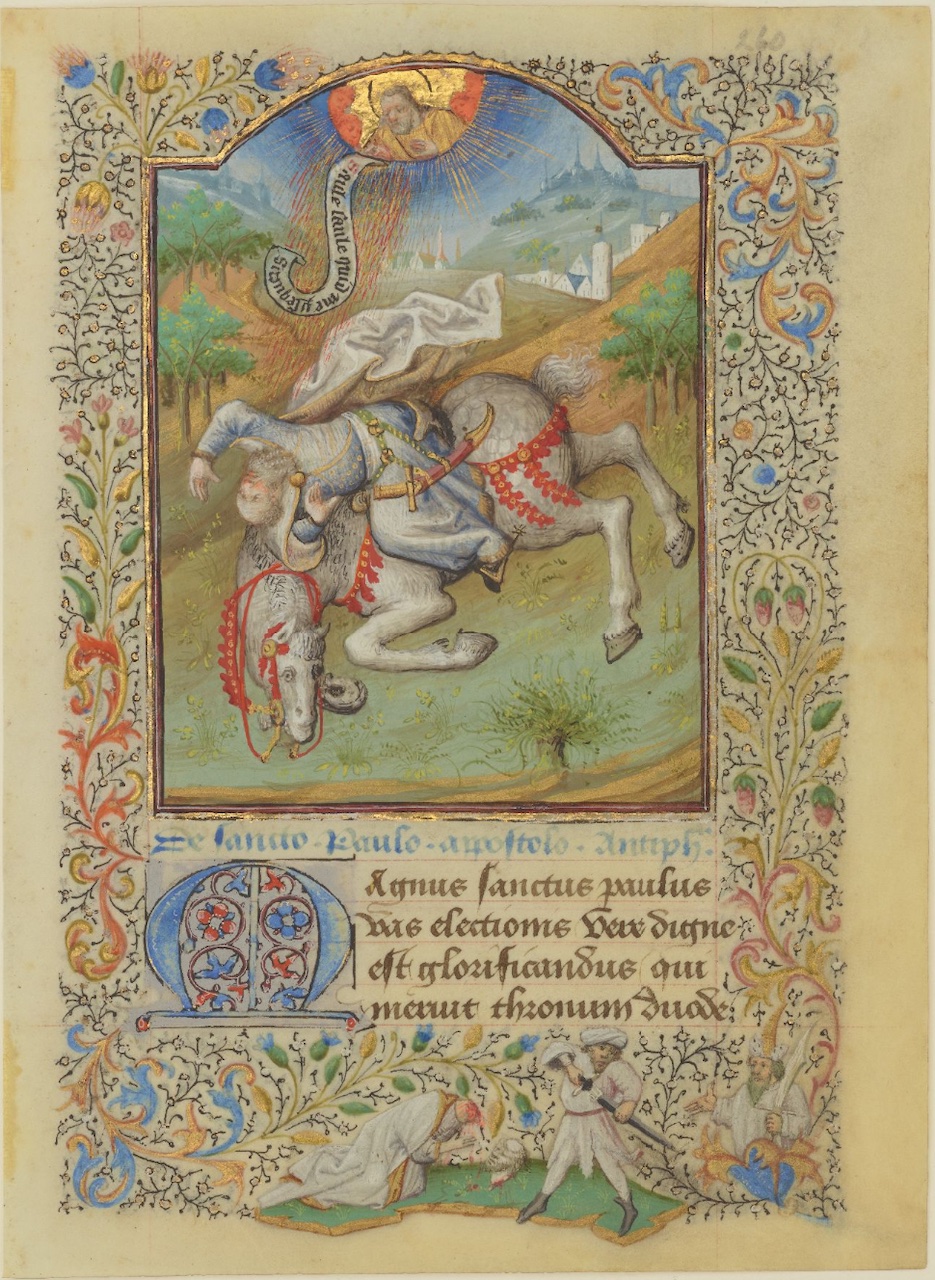 260
Saule saule quid me
De sancto · Paulo · appostolo · Antiphᵃ.
MAgnus sanctus paulus
vas electionis Vere digne
est glorificandus qui
meruit thronum duode